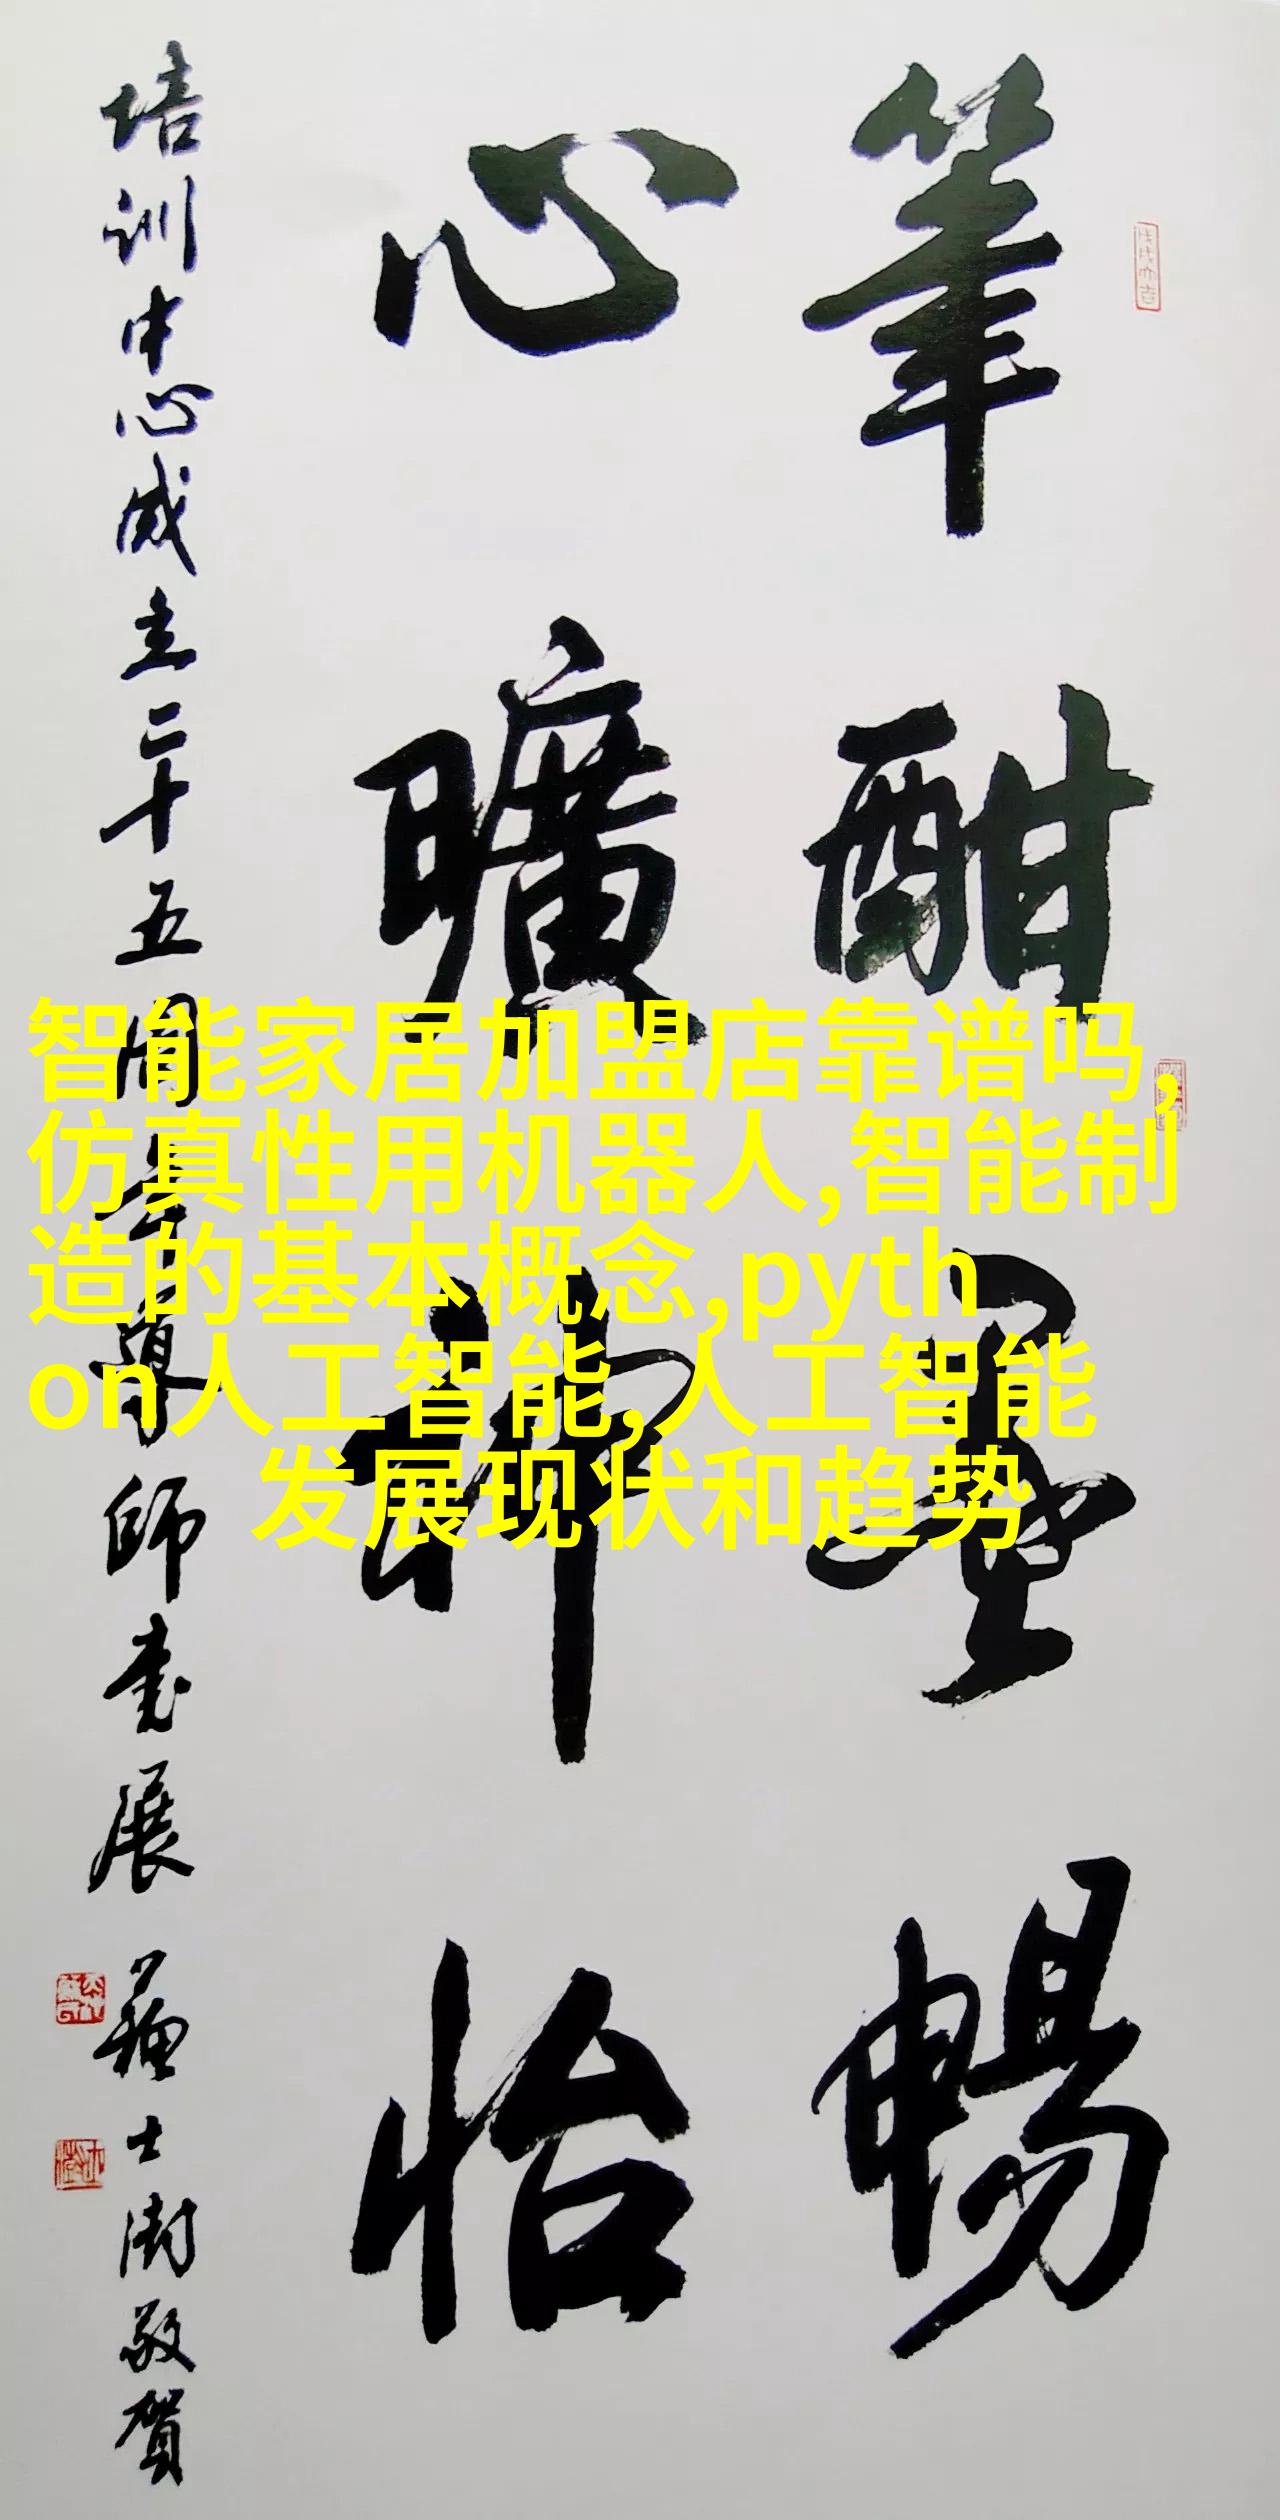 筆酣墨暢
心曠神怡
培训中心成立二十五周年導師書展 蘇士澍敬賀
智能家居加盟店靠谱吗,
仿真性用机器人,智能制
造的基本概念,pyth
on人工智能,人工智能
发展现状和趋势